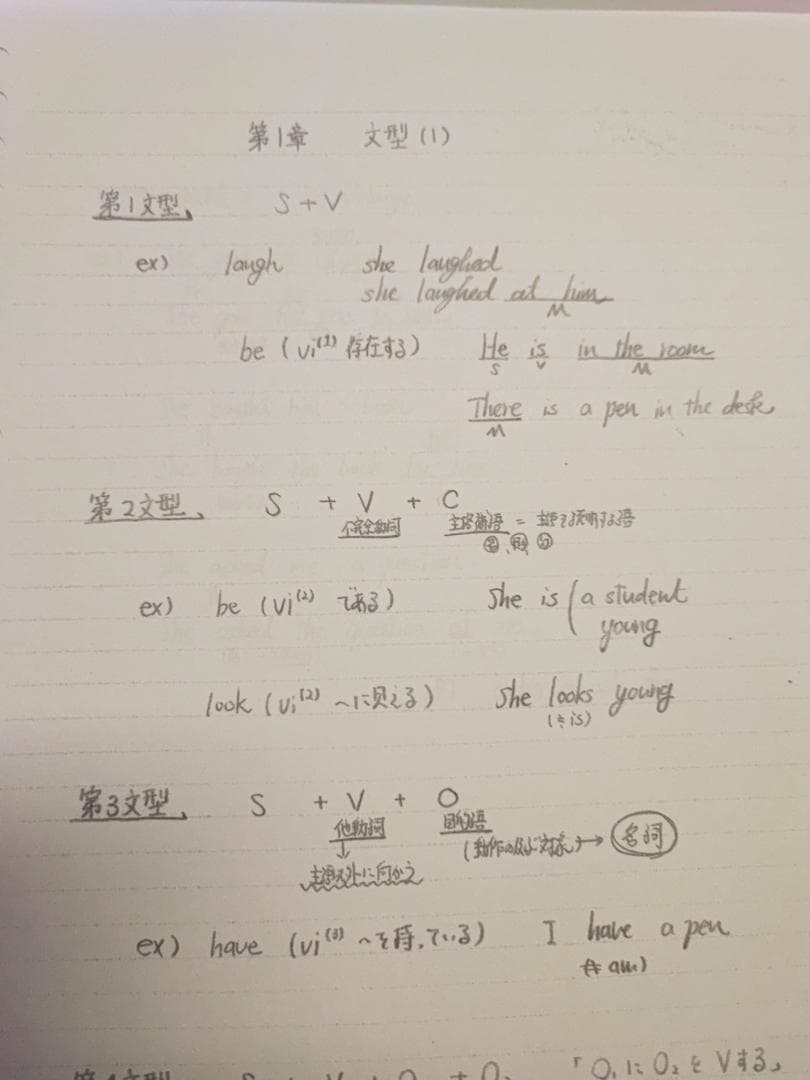 第1章 文型(1)
第1文型、 S+V
ex) laugh she laughed
she laughed at him
M
be (vi(1) 存在する) He is in the room
S V M
There is a pen in the desk
M
第2文型、 S + V + C
不完全動詞 主格補語 = 主語を説明する語
名、形
ex) be (vi(2) である) She is ( a student
young
look (vi(2) 〜に見える) she looks young
(≒ is)
第3文型、 S + V + O
他動詞 目的語
(動作の及ぶ対象) → 名詞
↓
主語以外に向かう
ex) have (vi(3) 〜を持っている) I have a pen
(≠ am)
第4文型 S + V + O₁ + O₂ 「O₁にO₂をVする」